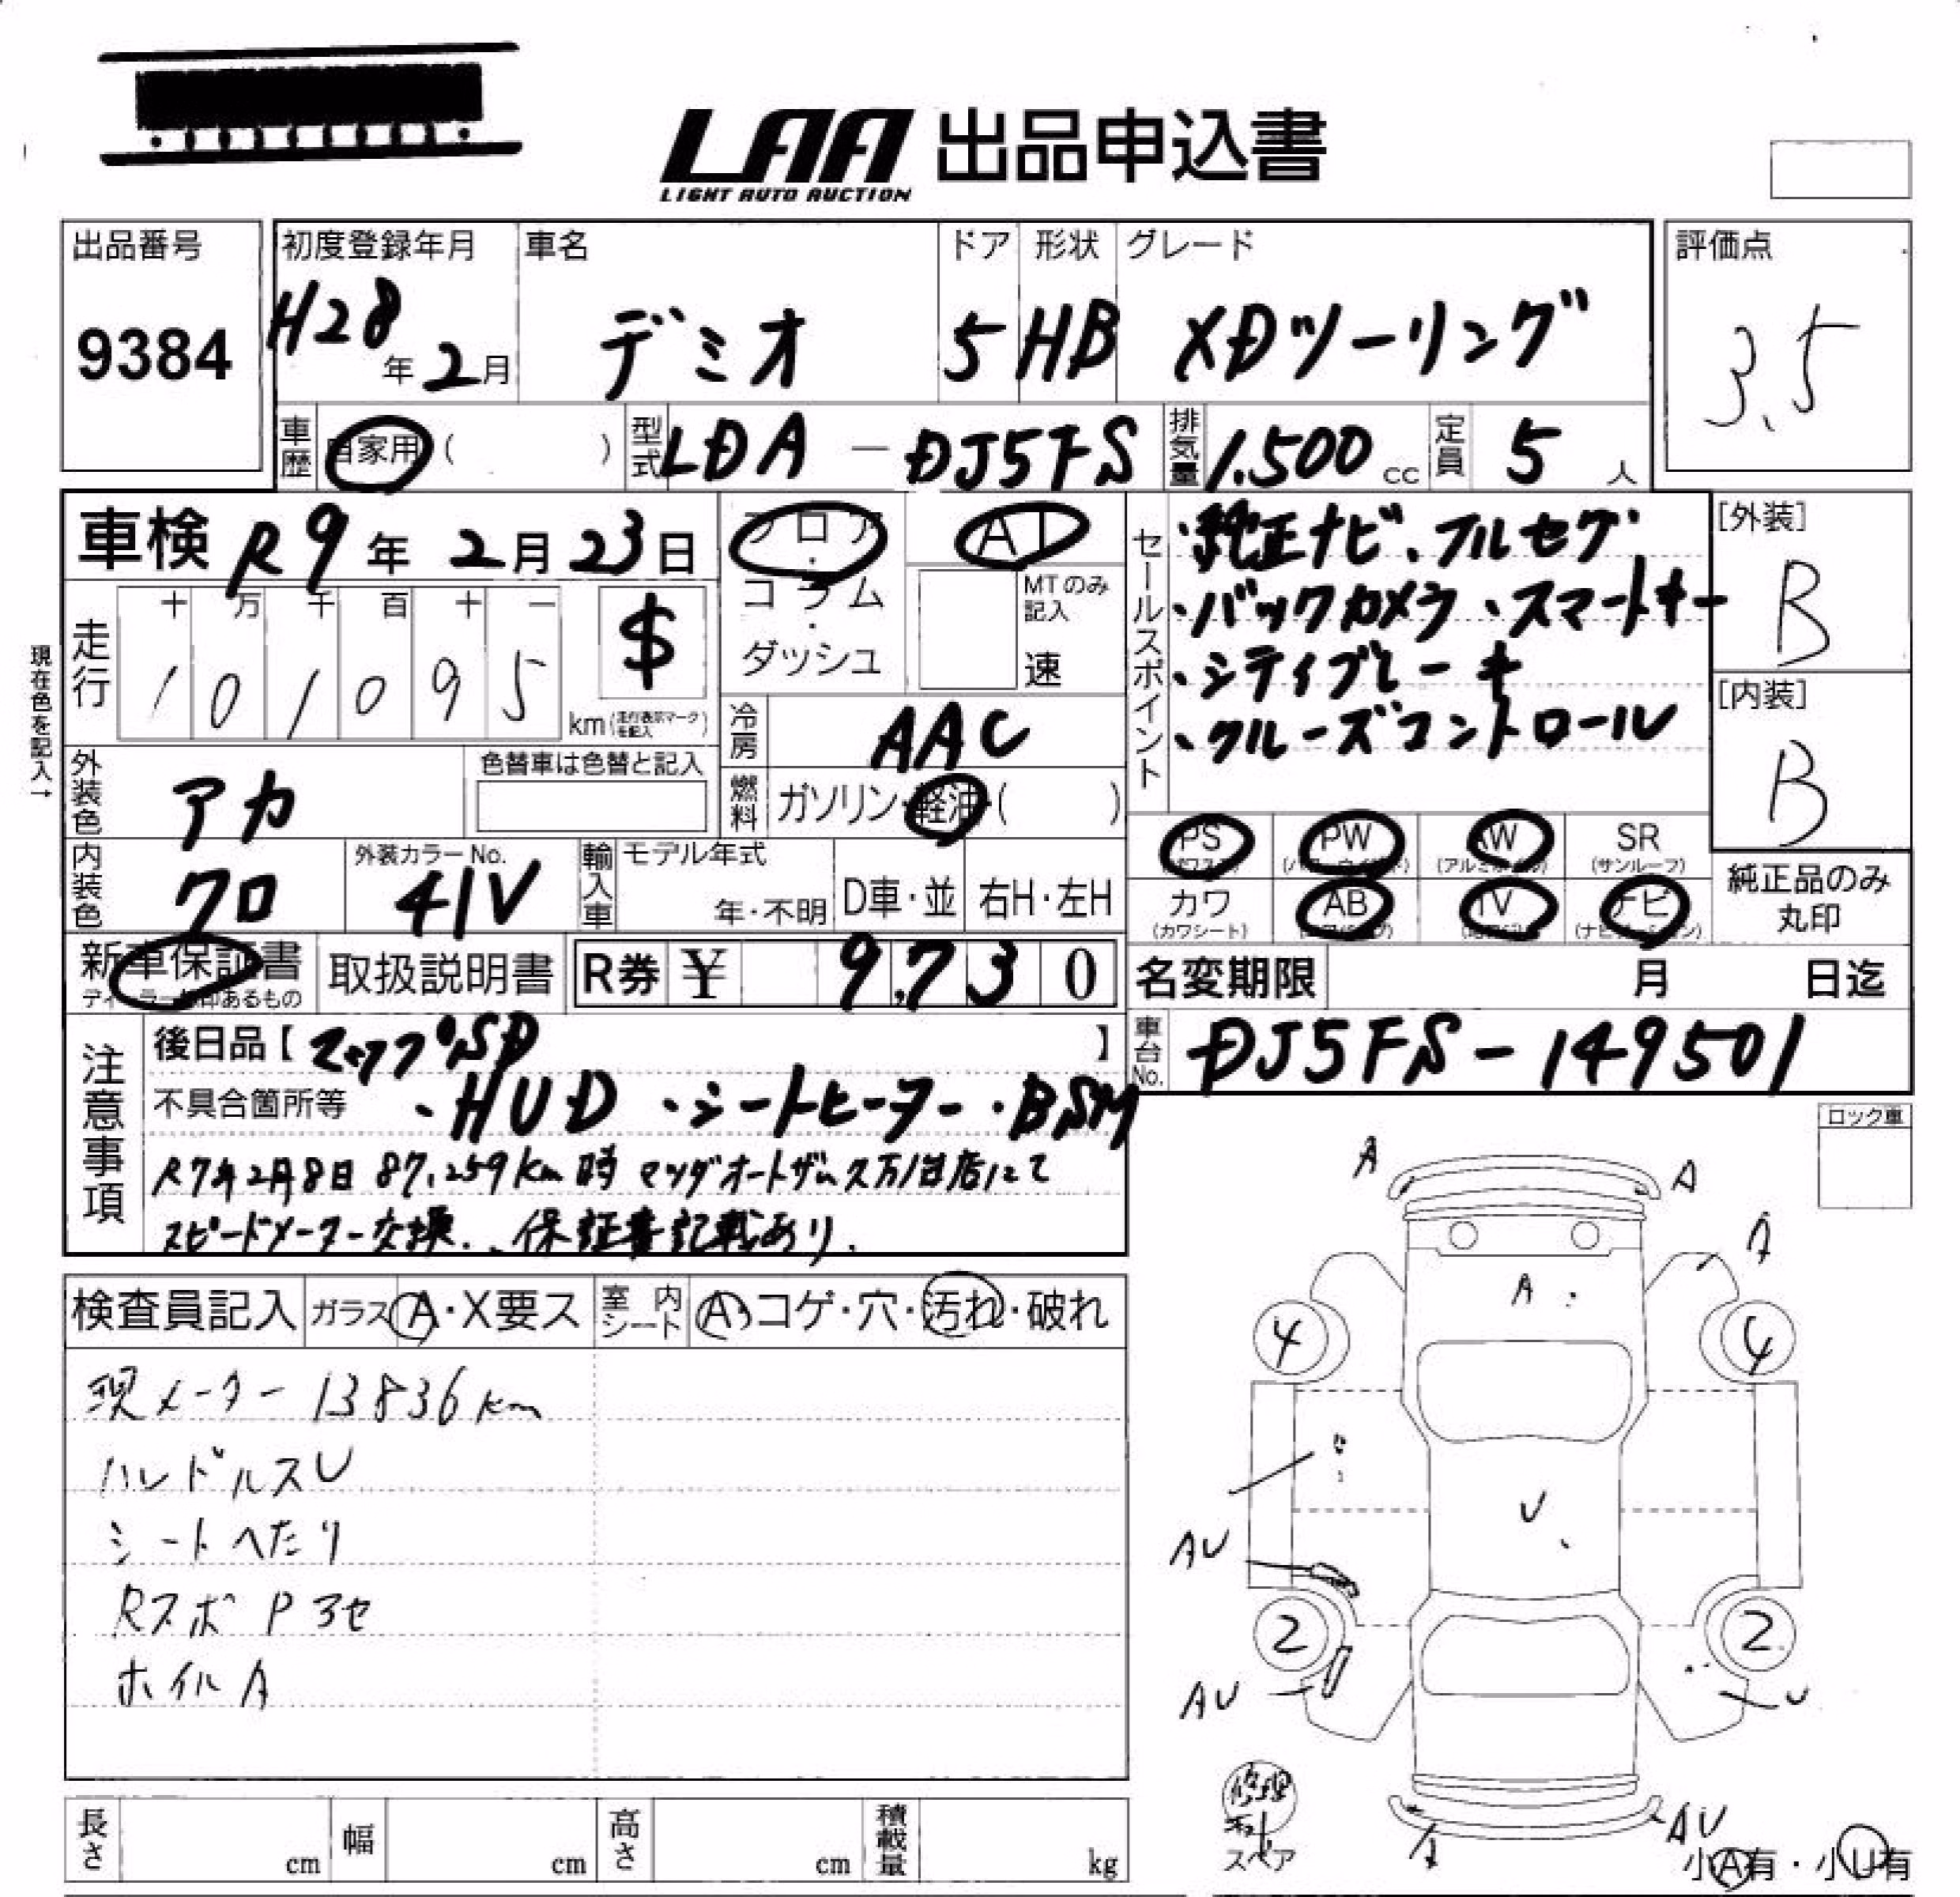 LAA 出品申込書
LIGHT AUTO AUCTION
出品番号
9384
初度登録年月
H28年2月
車名
デミオ
ドア
5
形状
HB
グレード
XDツーリング
評価点
3.5
車歴 自家用 ( )
型式 LDA-DJ5FS
排気量 1.500cc
定員 5人
車検 R9年2月23日
フロア・コラム・ダッシュ
AT
MTのみ記入
速
セールスポイント
・純正ナビ、フルセグ
・バックカメラ、スマートキー
・シティブレーキ
・クルーズコントロール
[外装]
B
[内装]
B
現在色を記入→
走行
十 万 千 百 十 一
1 0 1 0 9 5
$
km (走行表示マークを記入)
冷房 AAC
燃料 ガソリン・軽油・( )
外装色 アカ
色替車は色替と記入
内装色 クロ
外装カラーNo.
41V
輸入車
モデル年式
年・不明
D車・並
右H・左H
PS
(パワステ)
PW
(パワーウインド)
AW
(アルミホイル)
SR
(サンルーフ)
カワ
(カワシート)
AB
TV
ナビ
(ナビゲーション)
純正品のみ
丸印
新車保証書
ディーラー印あるもの
取扱説明書
R券 ¥ 9,730
名変期限 月 日迄
車台No. DJ5FS-149501
注意事項
後日品【マップSD 】
不具合箇所等 ・HUD ・シートヒーター・BSM
R7年2月8日 87,259km時 マツダオートザム
スピードメーター交換、保証書記載あり.
ロック車
検査員記入
ガラス A・X要ス
室内シート A・コゲ・穴・汚れ・破れ
現メーター 13836km
ハンドルスU
シートへたり
Rスポ P 3セ
ホイルA
A
A
A
A
4
4
U
AU
2
2
AU
U
修理キット
スペア
A
AU
小A有・小U有
長さ cm
幅 cm
高さ cm
積載量 kg